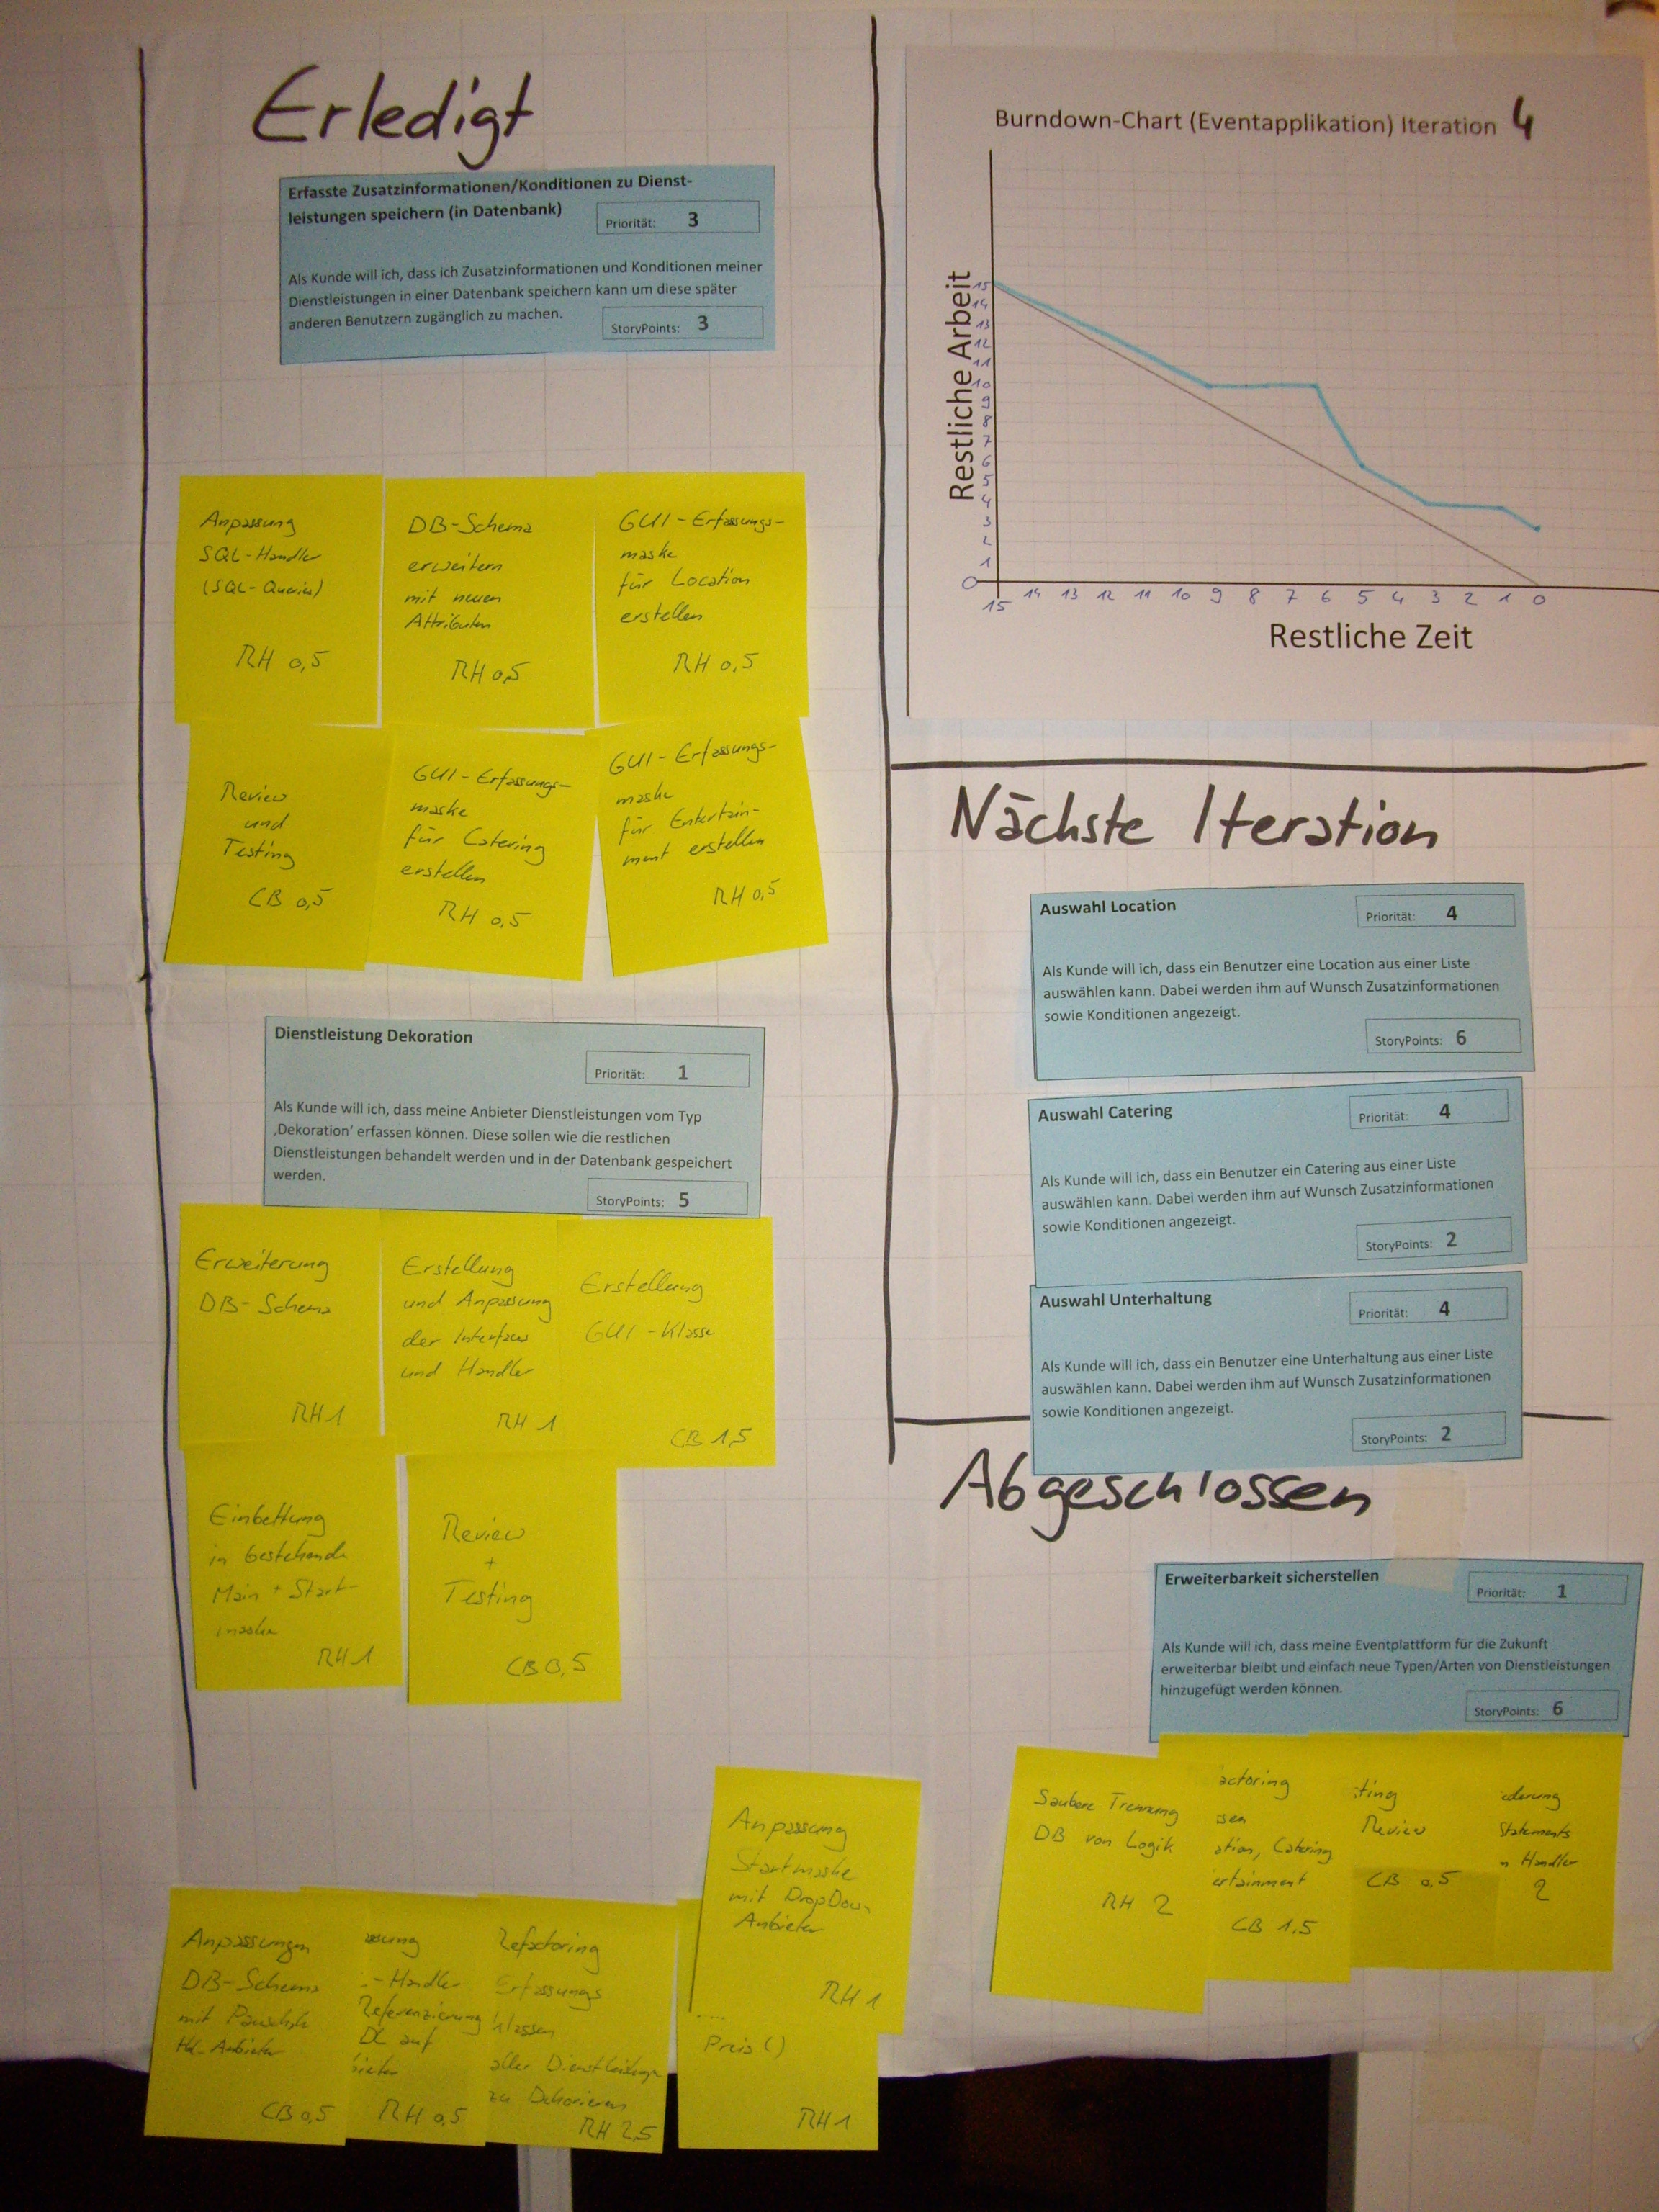 Erledigt
Erfasste Zusatzinformationen/Konditionen zu Dienst-
leistungen speichern (in Datenbank)
Priorität: 3
Als Kunde will ich, dass ich Zusatzinformationen und Konditionen meiner
Dienstleistungen in einer Datenbank speichern kann um diese später
anderen Benutzern zugänglich zu machen.
StoryPoints: 3
Anpassung
SQL-Handler
(SQL-Queries)
RH 0,5
DB-Schema
erweitern
mit neuen
Attributen
RH 0,5
GUI-Erfassungs-
maske
für Location
erstellen
RH 0,5
Review
und
Testing
CB 0,5
GUI-Erfassungs-
maske
für Catering
erstellen
RH 0,5
GUI-Erfassungs-
maske
für Entertain-
ment erstellen
RH 0,5
Dienstleistung Dekoration
Priorität: 1
Als Kunde will ich, dass meine Anbieter Dienstleistungen vom Typ
‚Dekoration' erfassen können. Diese sollen wie die restlichen
Dienstleistungen behandelt werden und in der Datenbank gespeichert
werden.
StoryPoints: 5
Erweiterung
DB-Schema
RH 1
Erstellung
und Anpassung
der Interfaces
und Handler
RH 1
Erstellung
GUI-Klasse
CB 1,5
Einbettung
in bestehende
Main + Start-
RH 1
Review
+
Testing
CB 0,5
Anpassungen
DB-Schema
mit
Anbieter
CB 0,5
ssung
-Handler
Referenzierung
DL auf
bieter
RH 0,5
Refactoring
Erfassungs
klassen
aller
zu
RH 2,5
Anpassung
Startmaske
mit DropDown
Anbieter
RH 1
Preis()
RH 1
Burndown-Chart (Eventapplikation) Iteration 4
Restliche Arbeit
15
14
13
12
11
10
9
8
7
6
5
4
3
2
1
0
15 14 13 12 11 10 9 8 7 6 5 4 3 2 1 0
Restliche Zeit
Nächste Iteration
Auswahl Location
Priorität: 4
Als Kunde will ich, dass ein Benutzer eine Location aus einer Liste
auswählen kann. Dabei werden ihm auf Wunsch Zusatzinformationen
sowie Konditionen angezeigt.
StoryPoints: 6
Auswahl Catering
Priorität: 4
Als Kunde will ich, dass ein Benutzer ein Catering aus einer Liste
auswählen kann. Dabei werden ihm auf Wunsch Zusatzinformationen
sowie Konditionen angezeigt.
StoryPoints: 2
Auswahl Unterhaltung
Priorität: 4
Als Kunde will ich, dass ein Benutzer eine Unterhaltung aus einer Liste
auswählen kann. Dabei werden ihm auf Wunsch Zusatzinformationen
sowie Konditionen angezeigt.
StoryPoints: 2
Abgeschlossen
Erweiterbarkeit sicherstellen
Priorität: 1
Als Kunde will ich, dass meine Eventplattform für die Zukunft
erweiterbar bleibt und einfach neue Typen/Arten von Dienstleistungen
hinzugefügt werden können.
StoryPoints: 6
Saubere Trennung
DB von Logik
RH 2
actoring
sen
ation, Catering
ertainment
CB 1,5
ting
Review
CB 0,5
derung
Statements
n Handler
2